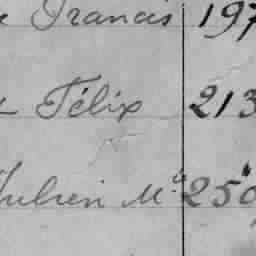 Francis 197
Félix 213
Julien Mce 250